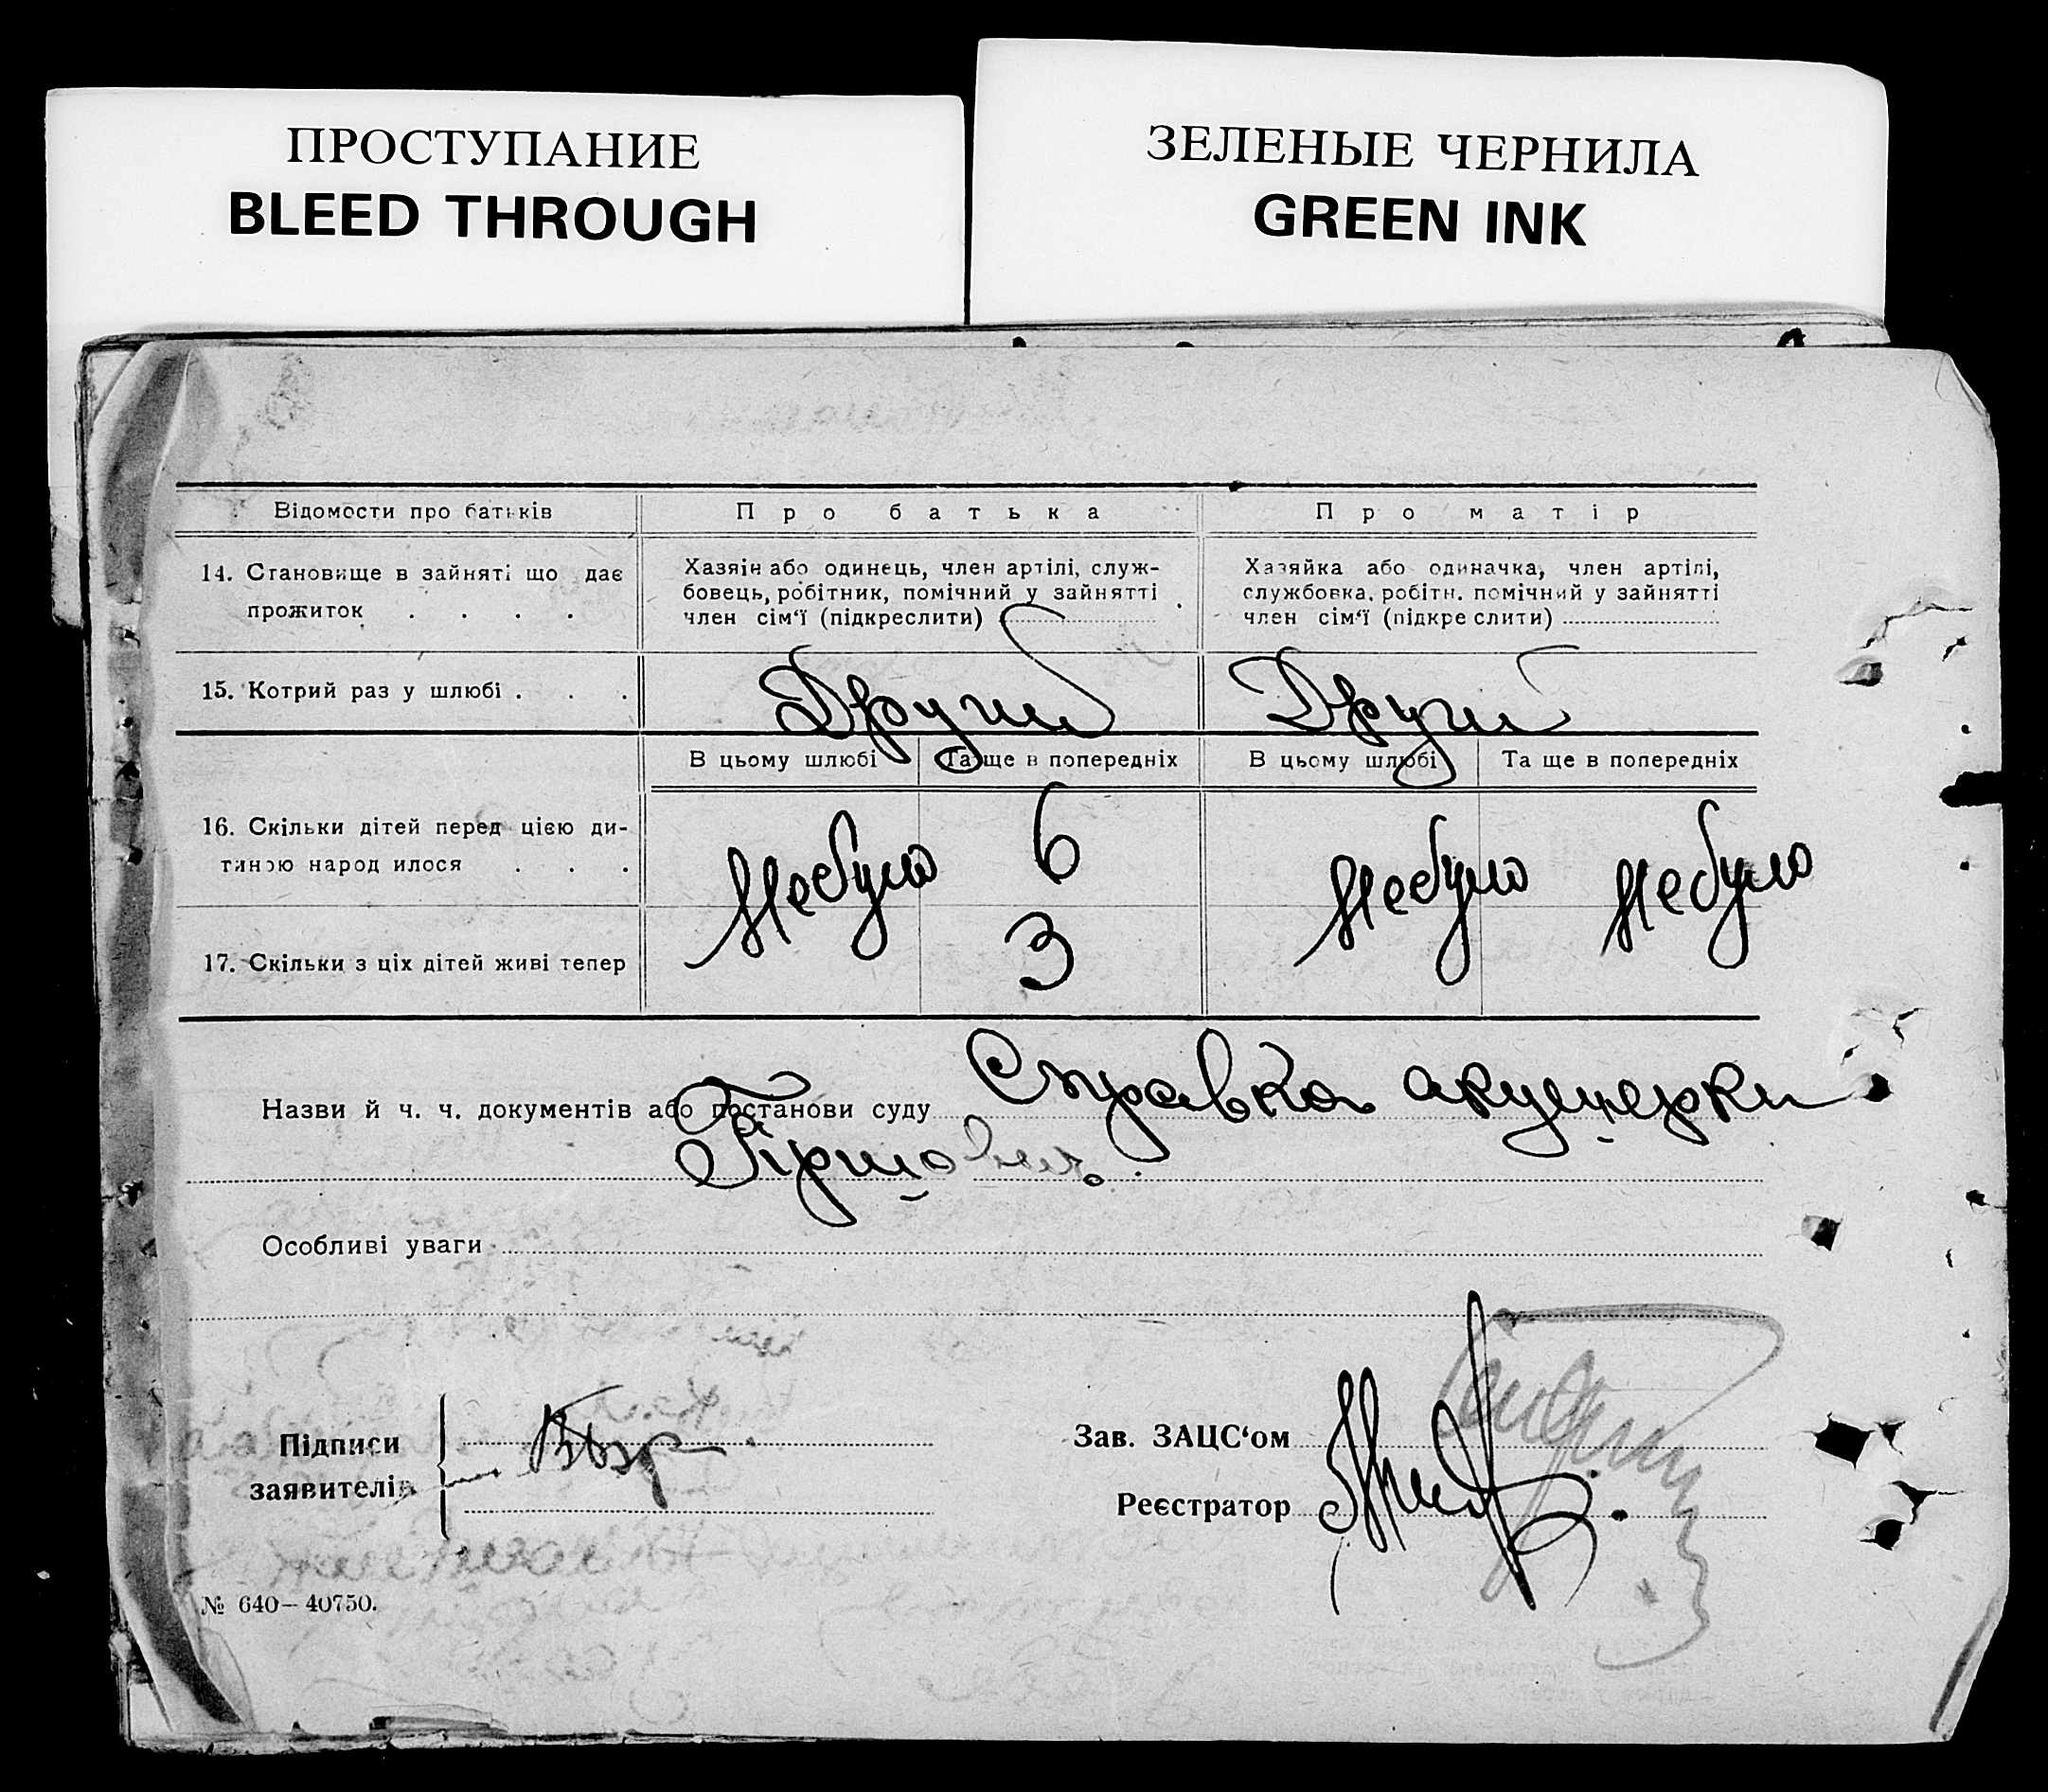 ПРОСТУПАНИЕ
BLEED THROUGH
ЗЕЛЕНЫЕ ЧЕРНИЛА
GREEN INK
Відомости про батьків
Про батька
Про матір
14. Становище в зайняті що дає
прожиток . . . .
Хазяін або одинець, член артілі, служ-
бовець, робітник, помічний у зайнятті
член сім‘ї (підкреслити)
Хазяйка або одиначка, член артілі,
службовка, робітн. помічний у зайнятті
член сім‘ї (підкреслити)
15. Котрий раз у шлюбі . . .
Другий
Другий
В цьому шлюбі
Та ще в попередніх
В цьому шлюбі
Та ще в попередніх
16. Скільки дітей перед цією ди-
тиною народилося . . .
Небуло
6
Небуло
Небуло
17. Скільки з ціх дітей живі тепер
3
Назви й ч. ч. документів або постанови суду Справка акушерки
Особливі уваги
Підписи
заявителів
Зав. ЗАЦС‘ом
Реєстратор
№ 640—40750.